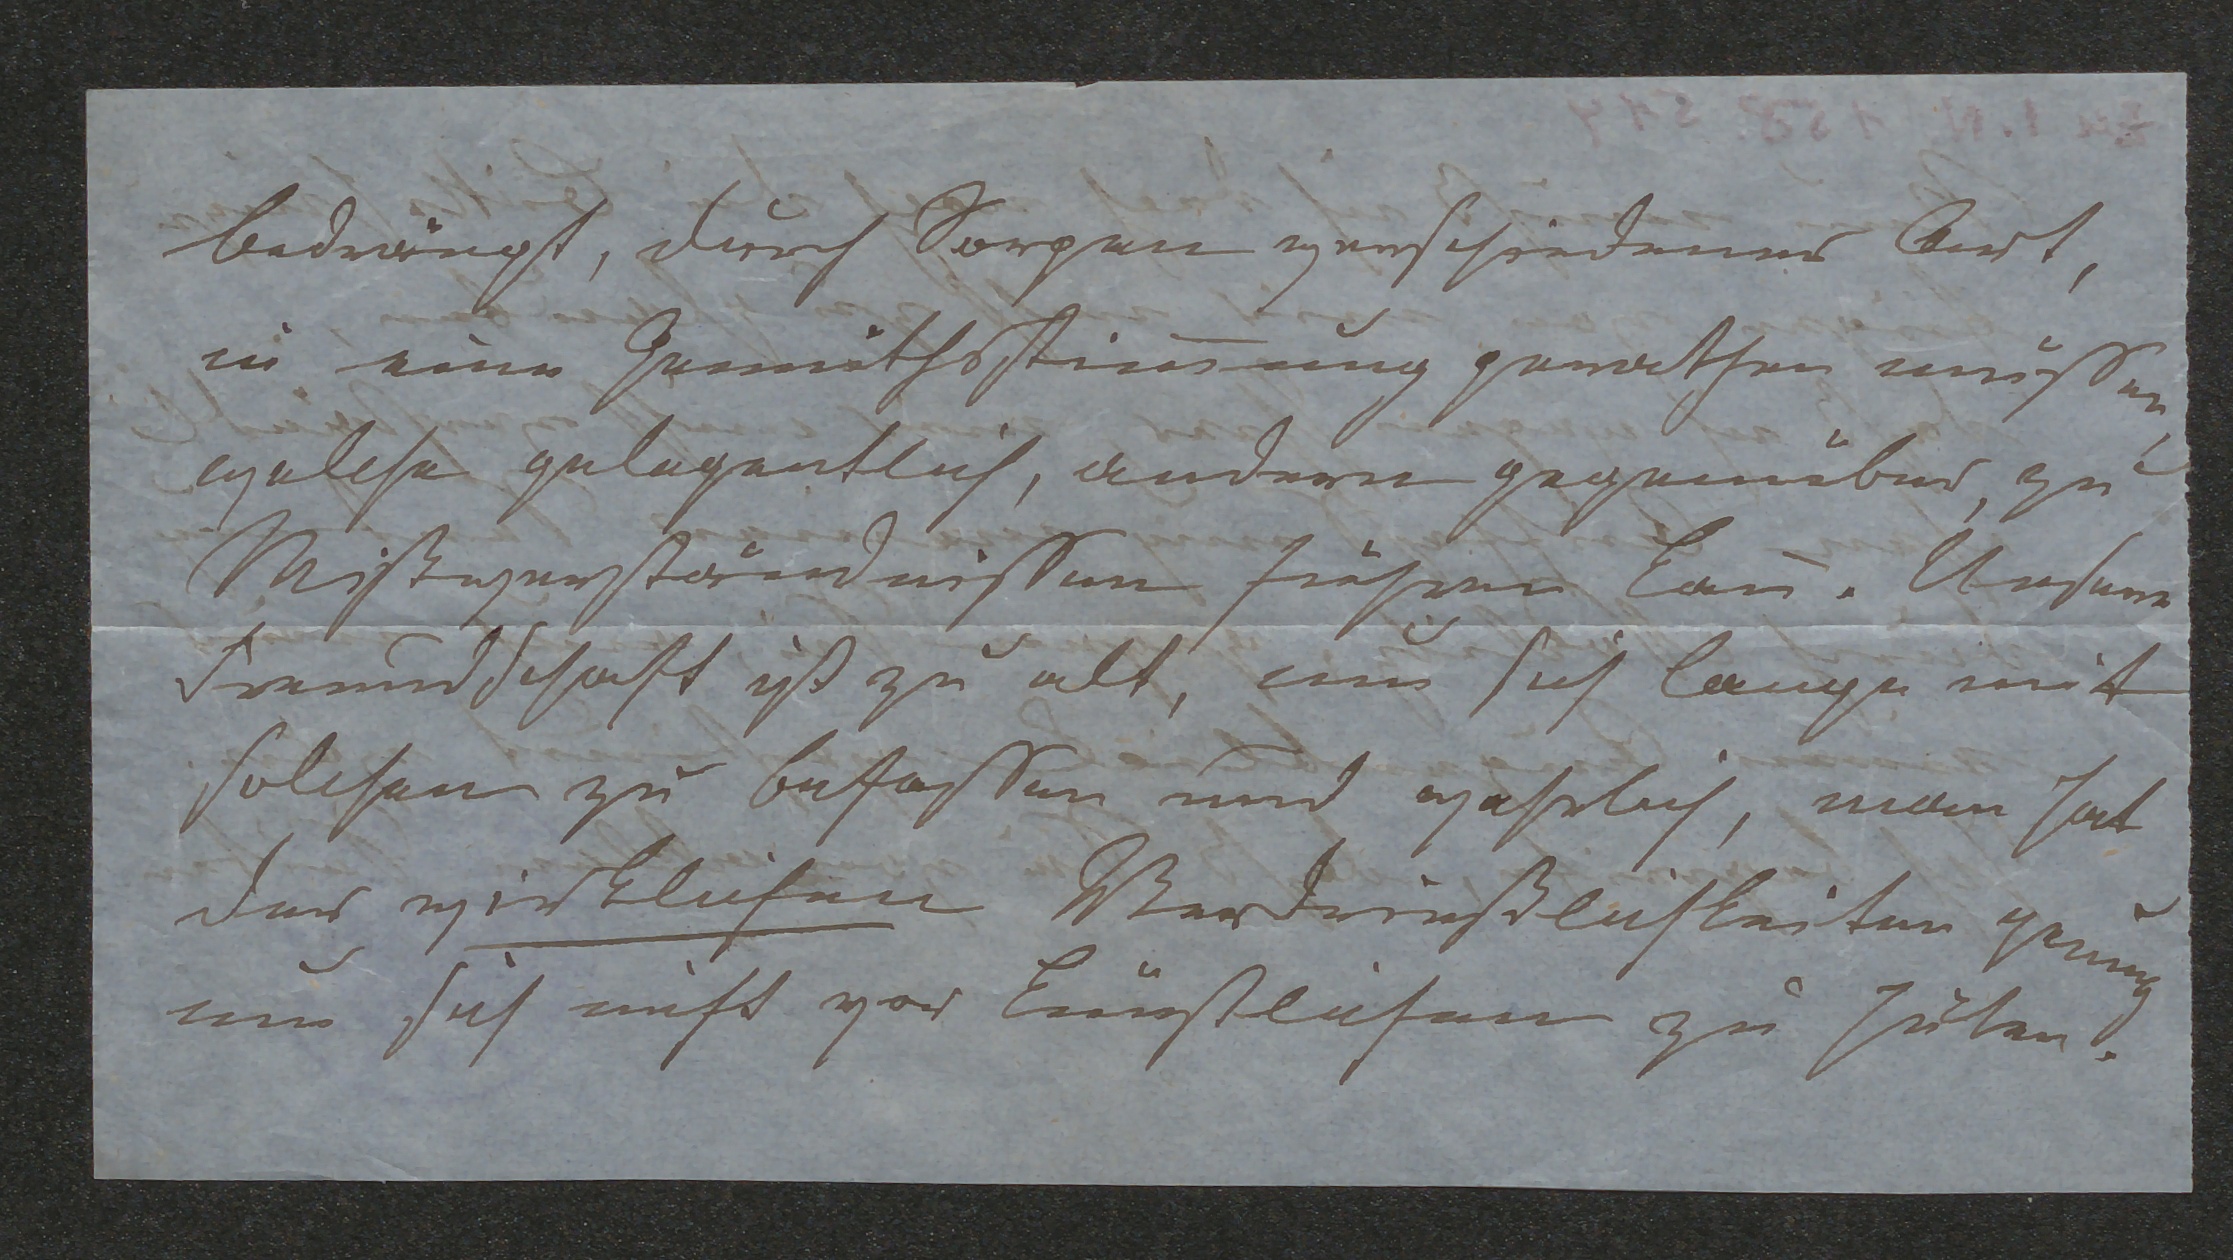 bedrängt, durch Sorgen verschiedener Art,
in eine Gemüthsstim̄ung gerathen müssen,
welche gelegentlich, andern gegenüber, zu
Mißverständnissen führen kan̄. Unsere
Freundschaft ist zu alt, um sich lange mit
solchen zu befassen und wahrlich, man hat
der wirklichen Verdrießlichkeiten genug
um sich nicht vor künstlichen zu hüten.